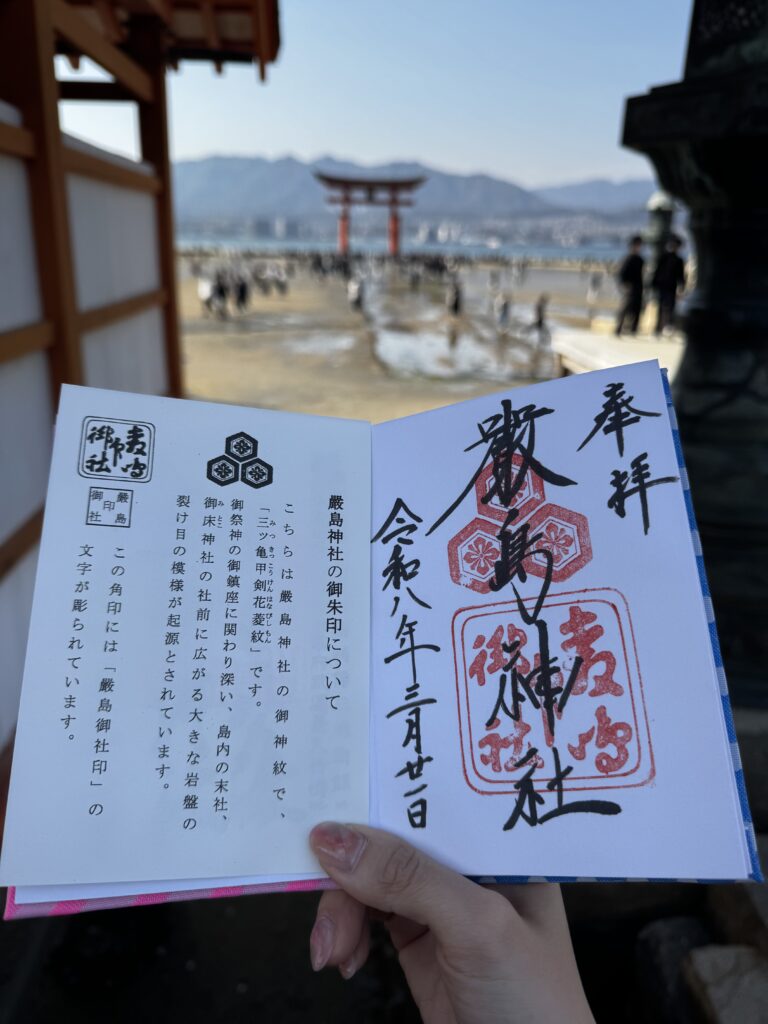 奉拝
嚴島神社
令和八年三月廿一日
嚴島
印
御社
嚴島神社の御朱印について
こちらは嚴島神社の御神紋で、
みつきっこうけんはなびしもん
「三ッ亀甲剣花菱紋」です。
御祭神の御鎮座に関わり深い、島内の末社、
みとこ
御床神社の社前に広がる大きな岩盤の
裂け目の模様が起源とされています。
嚴島
印
御社
嚴島
印
御社
この角印には「嚴島御社印」の
文字が彫られています。